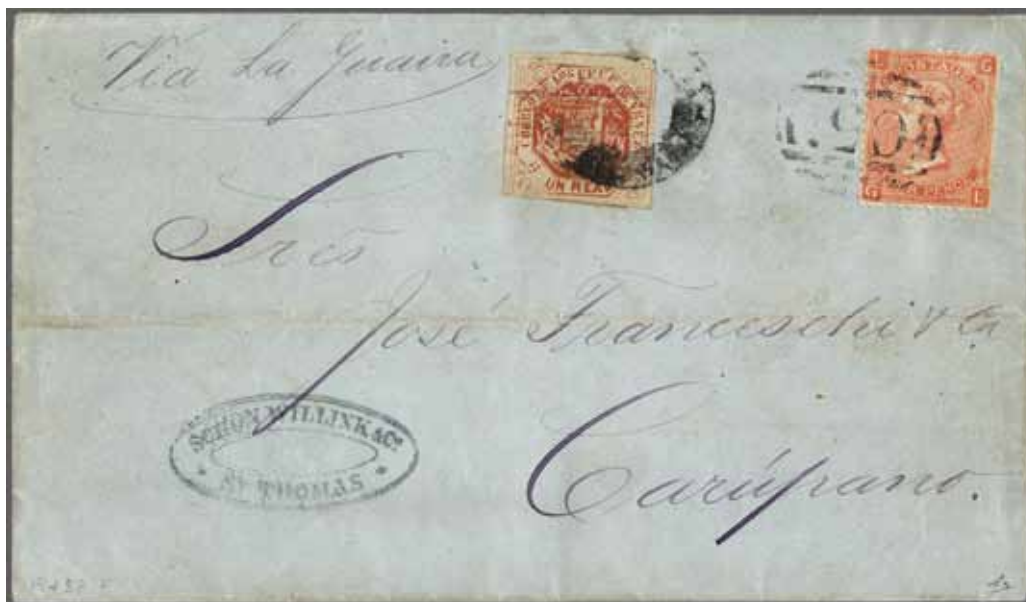 Via La Guaira
UN REAL
Sres
José Franceschi & Ca
Carúpano.
SCHÖN WILLINK & Co.
ST THOMAS